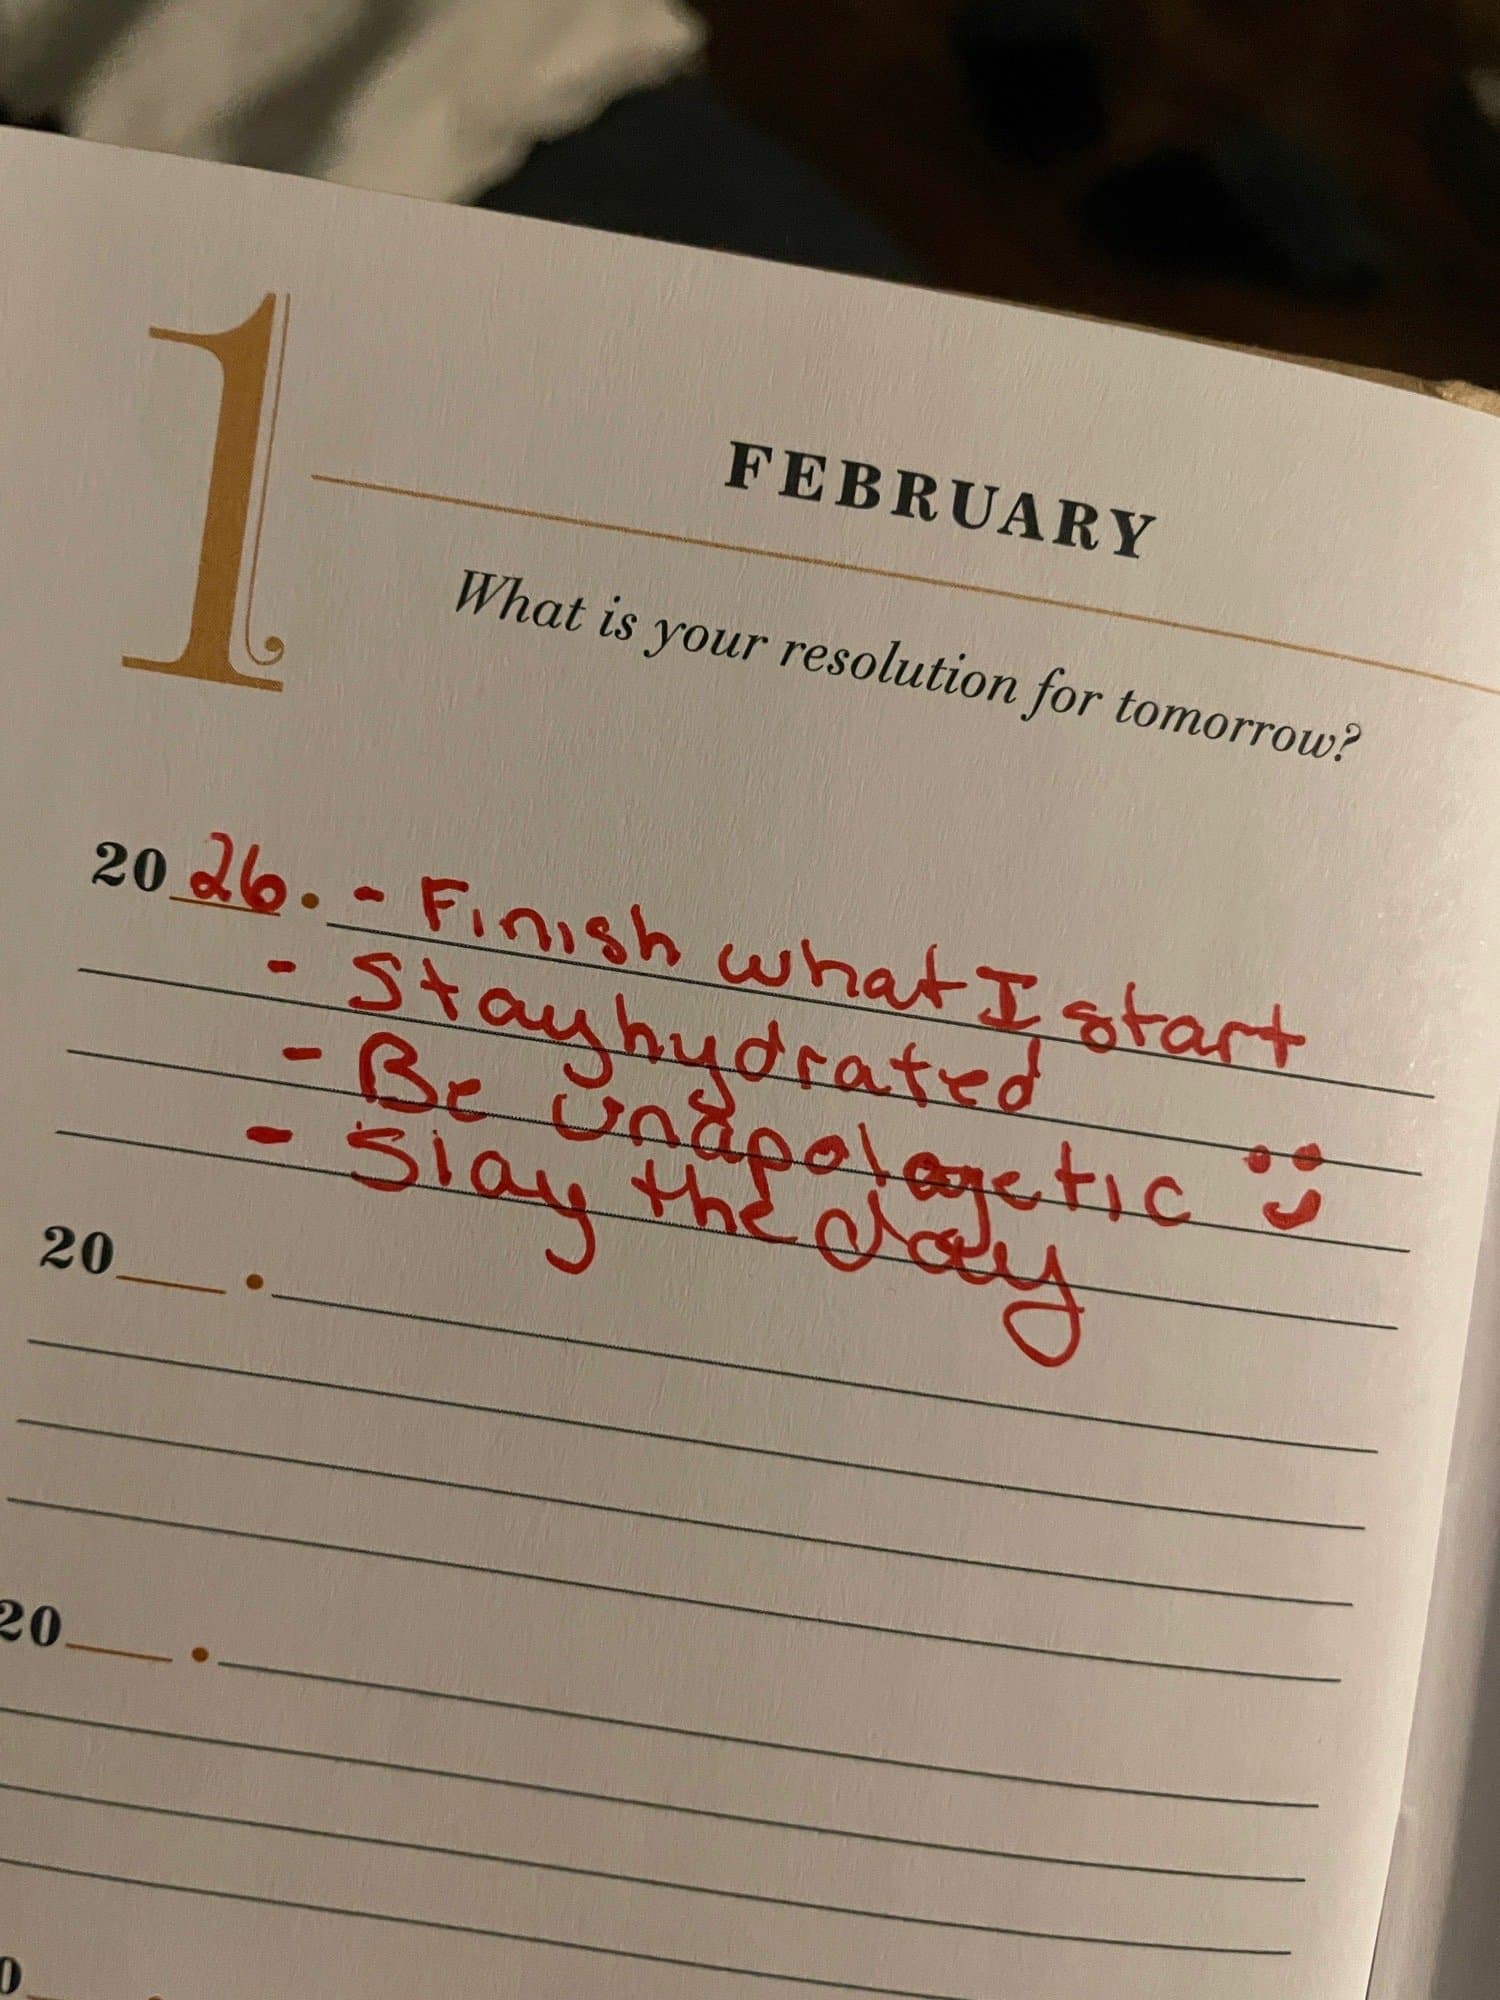 1
FEBRUARY
What is your resolution for tomorrow?
20 26 • - Finish what I start
- Stay hydrated
- Be unapologetic
- Slay the day
20___ •
20___ •
0